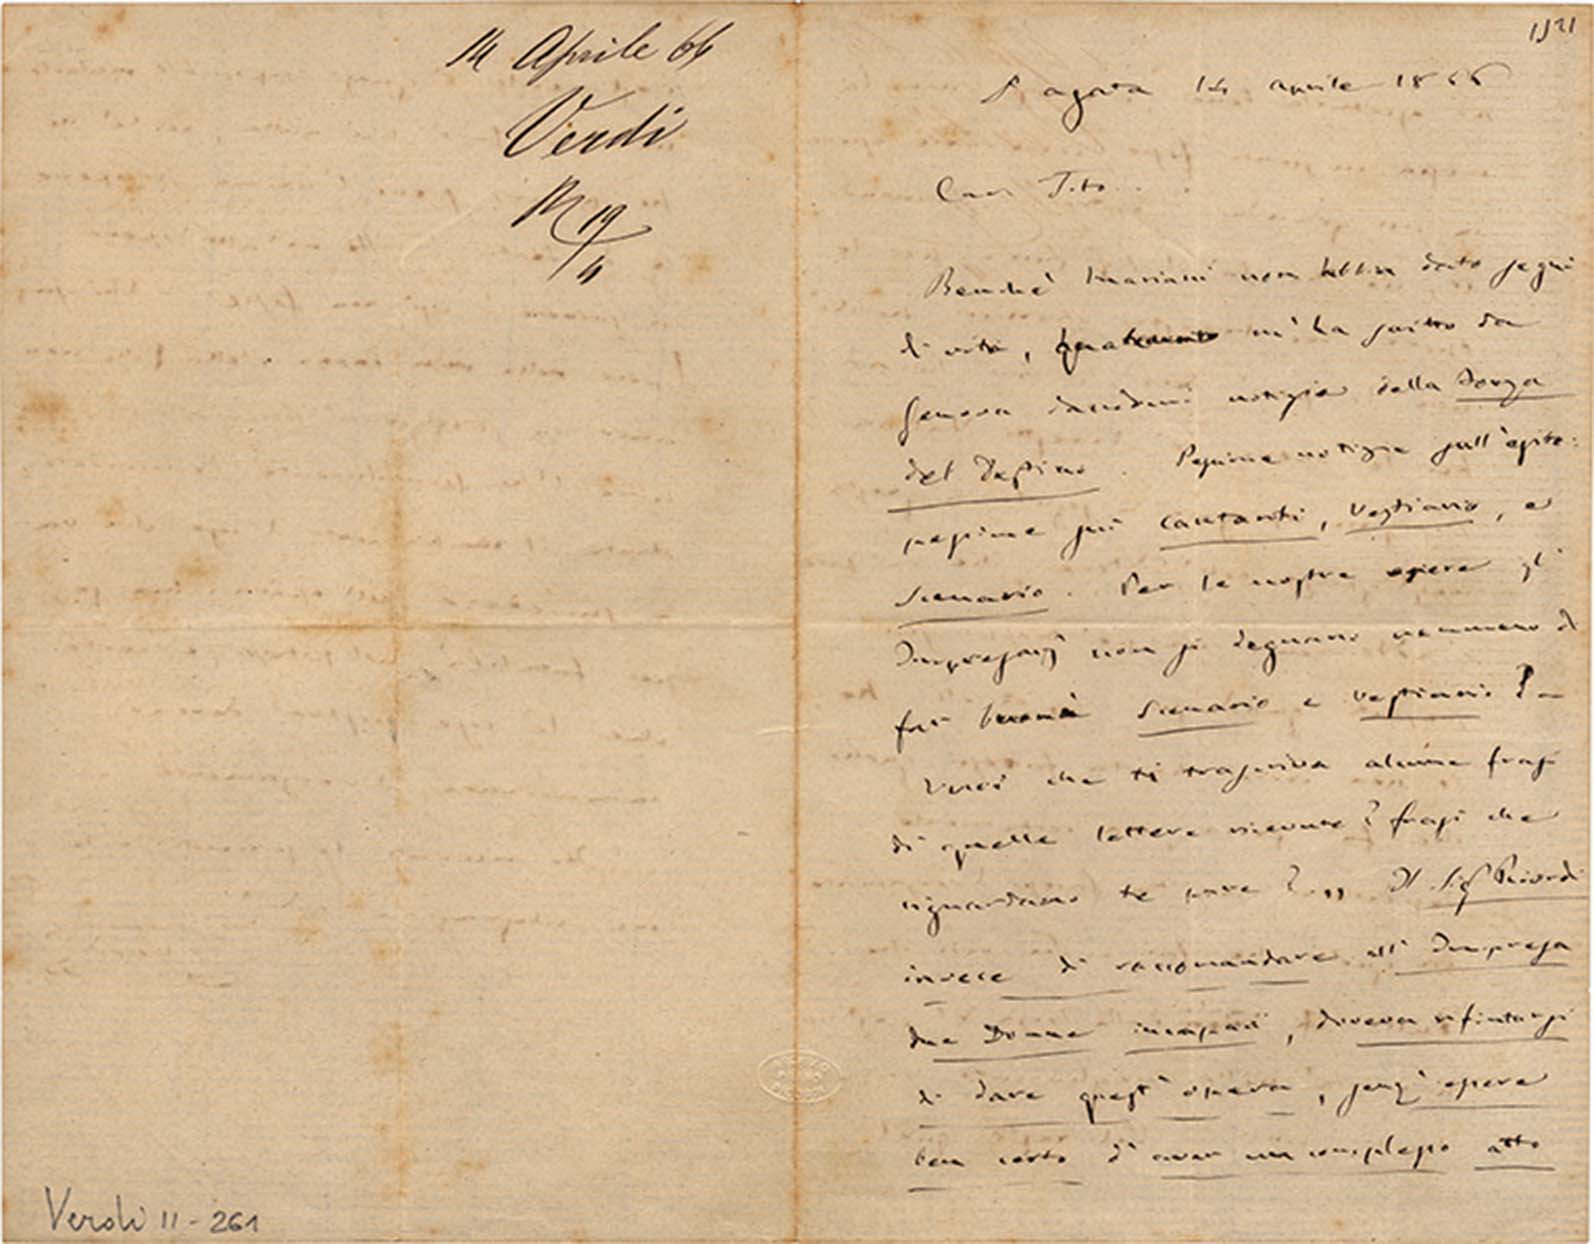 14 Aprile 66
Verdi
R 19/4
Verdi II - 261
1J21
S agata 14 aprile 1866
Caro Tito..
Benchè Mariani non abbia dato segni
di vita, m'ha scritto da
Genova dandomi notizie della Forza
del Destino. Pessime notizie sull'esito:
pessime sui cantanti, vestiario, e
scenario. Per le nostre opere gl'
Impresarj non si degnano nemmeno di
far buoni scenario e vestiario!
Vuoi che ti trascriva alcune frasi
di quelle lettere ricevute? frasi che
riguardano te pure?.,, Il Sig Ricordi
invece di raccomandare all' Impresa
due Donne incapaci, doveva rifiutarsi
di dare quest'opera, senz' essere
ben certo d'aver un complesso atto